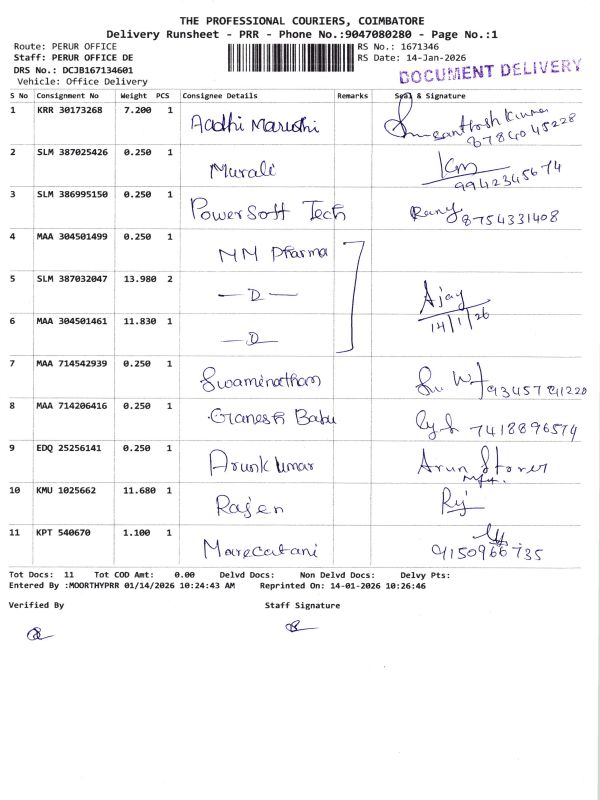 THE PROFESSIONAL COURIERS, COIMBATORE
Delivery Runsheet - PRR - Phone No.:9047080280 - Page No.:1
Route: PERUR OFFICE
RS No.: 1671346
Staff: PERUR OFFICE DE
RS Date: 14-Jan-2026
DRS No.: DCJB167134601
Vehicle: Office Delivery
DOCUMENT DELIVERY
S No Consignment No Weight PCS Consignee Details Remarks Seal & Signature
1 KRR 30173268 7.200 1 Aadhi Maruthi
2 SLM 387025426 0.250 1 Murali 9942345674
3 SLM 386995150 0.250 1 PowerSoft Tech 8754331408
4 MAA 304501499 0.250 1 MM Pharma
5 SLM 387032047 13.980 2 —D— Ajay
14/1/26
6 MAA 304501461 11.830 1 —D—
7 MAA 714542939 0.250 1 Swaminathan
8 MAA 714206416 0.250 1 Ganesh Babu 7418896574
9 EDQ 25256141 0.250 1 Arunkumar Arun
10 KMU 1025662 11.680 1 Rajen
11 KPT 540670 1.100 1 9150966735
Tot Docs: 11 Tot COD Amt: 0.00 Delvd Docs: Non Delvd Docs: Delvy Pts:
Entered By :MOORTHYPRR 01/14/2026 10:24:43 AM Reprinted On: 14-01-2026 10:26:46
Verified By Staff Signature